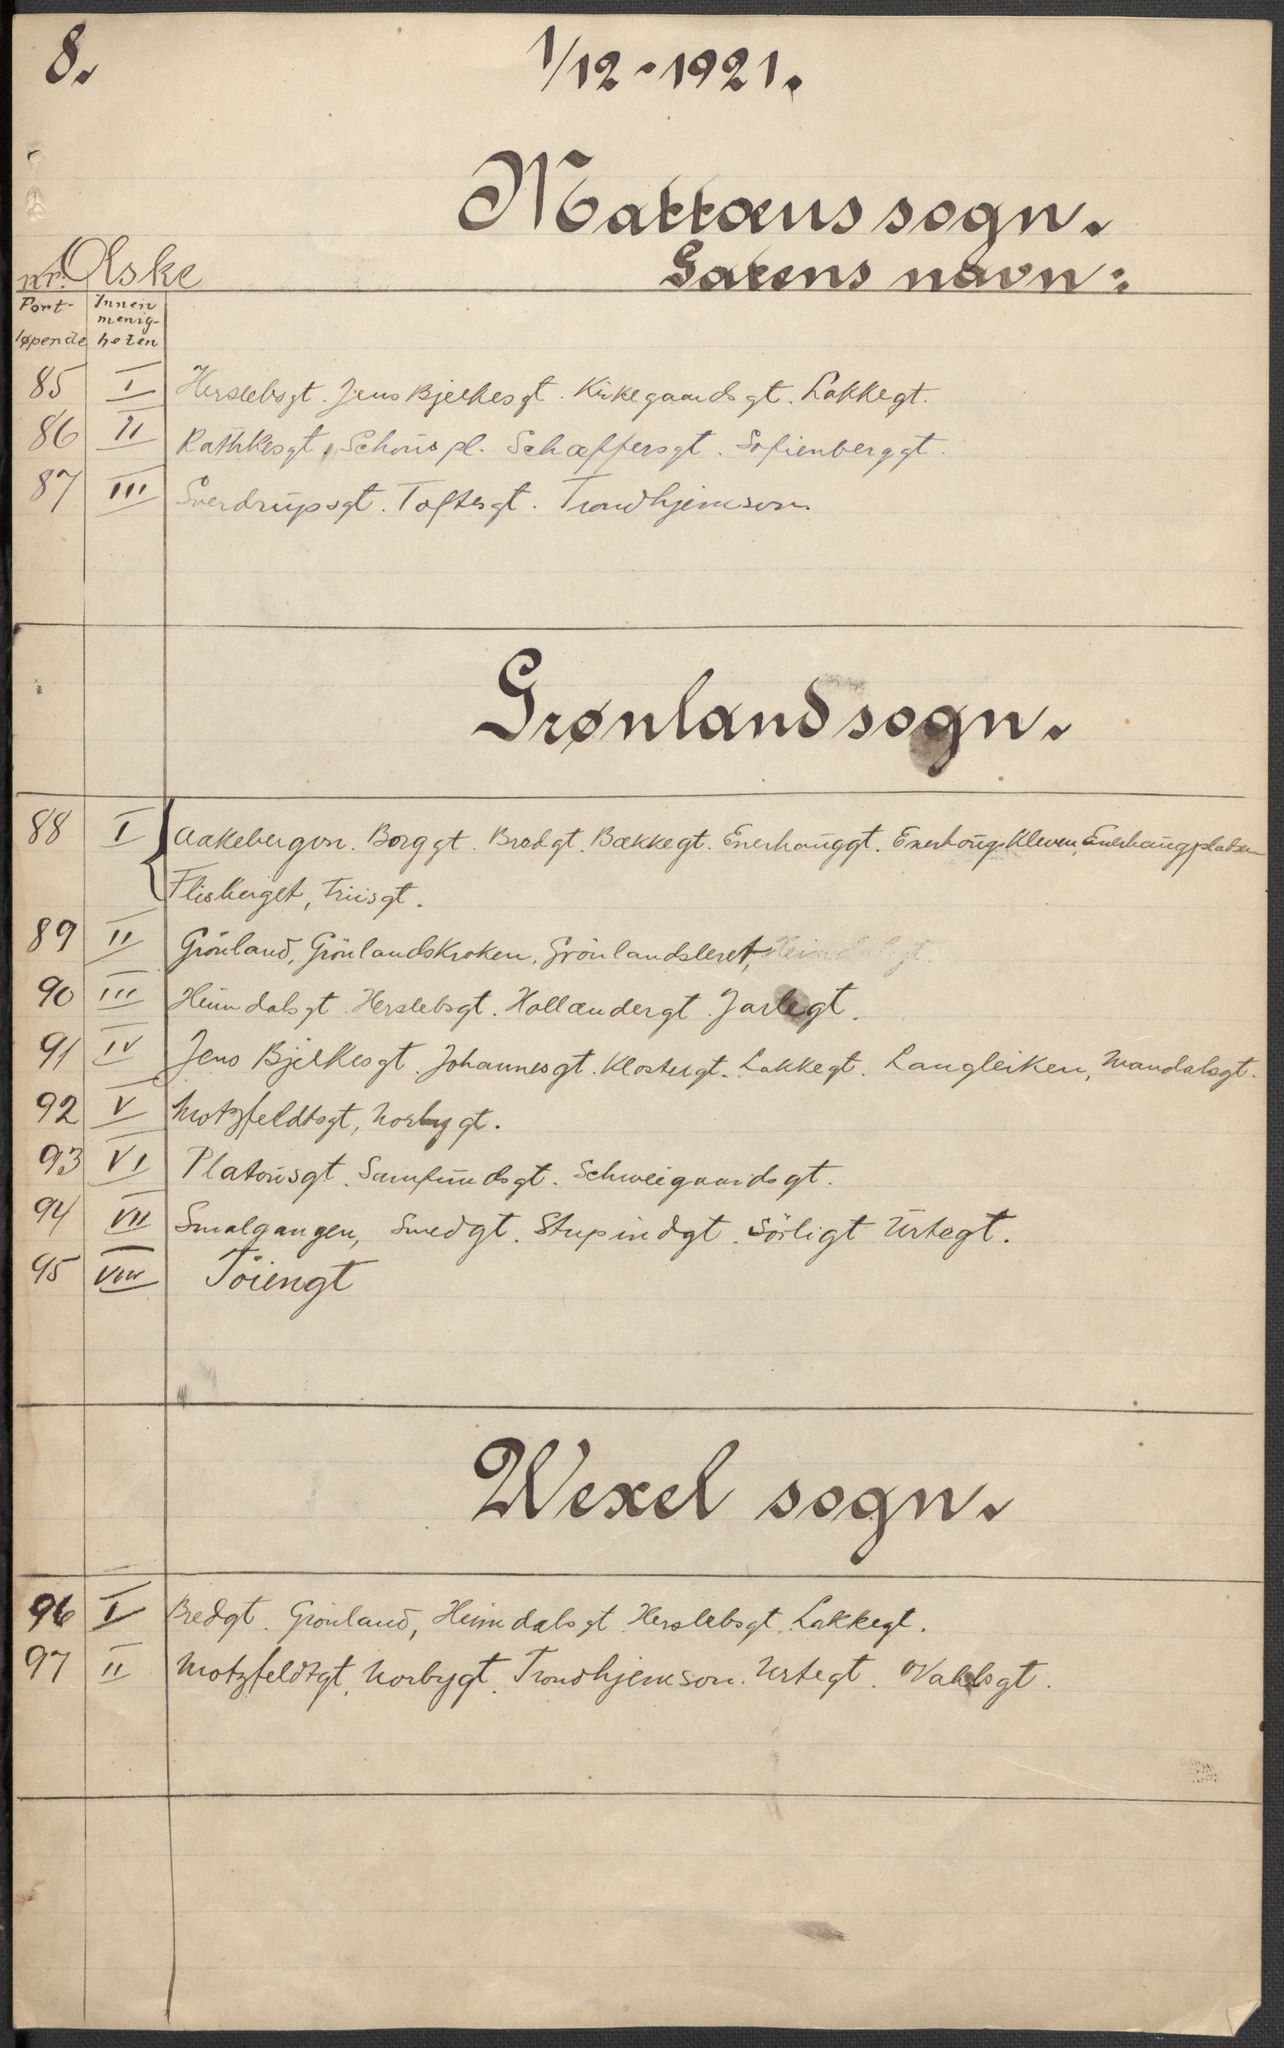 8.
1/12-1921.
Mattæus sogn.
nr. Æske
Gatens navn:
Fort-
løpende
Innen
menig-
heten
85 I Herslebsgt. Jens Bjelkesgt. Kirkegaardsgt. Lakkegt.
86 II Rathkesgt, Schous pl. Schæffersgt. Sofienberggt.
87 III Sverdrupsgt. Toftesgt. Trondhjemsvn.
Grønland sogn.
88 I Aakebergvn. Borggt. Bredgt. Bækkegt. Enerhauggt. Enerhaugkleven, Enerhaugplatsen
Flisberget, Friisgt.
89 II Grönland, Grönlandskroken, Grönlandsleret, Heimdalsgt.
90 III Heimdalsgt. Herslebsgt. Hollændergt. Jarlegt.
91 IV Jens Bjelkesgt. Johannesgt. Klostergt. Lakkegt. Langleiken, Mandalsgt.
92 V Motzfeldtsgt, Norbygt.
93 VI Platousgt. Samfundsgt. Schweigaardsgt.
94 VII Smalgangen, Smedgt. Stupindgt. Sörligt Urtegt.
95 VIII Töiengt
Wexel sogn.
96 I Bredgt. Grönland, Heimdalsgt Herslebsgt. Lakkegt.
97 II Motzfeldtgt, Norbygt. Trondhjemsvn. Urtegt. Vahlsgt.